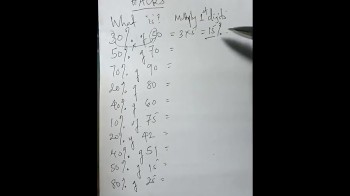 HACKS
What is? Multiply 1st digits
30% of 50 = 3 x 5 = 15%
50% of 70 =
70% of 90 =
20% of 80 =
40% of 60 =
10% of 75 =
20% of 42 =
40% of 51 =
50% of 15 =
80% of 25 =